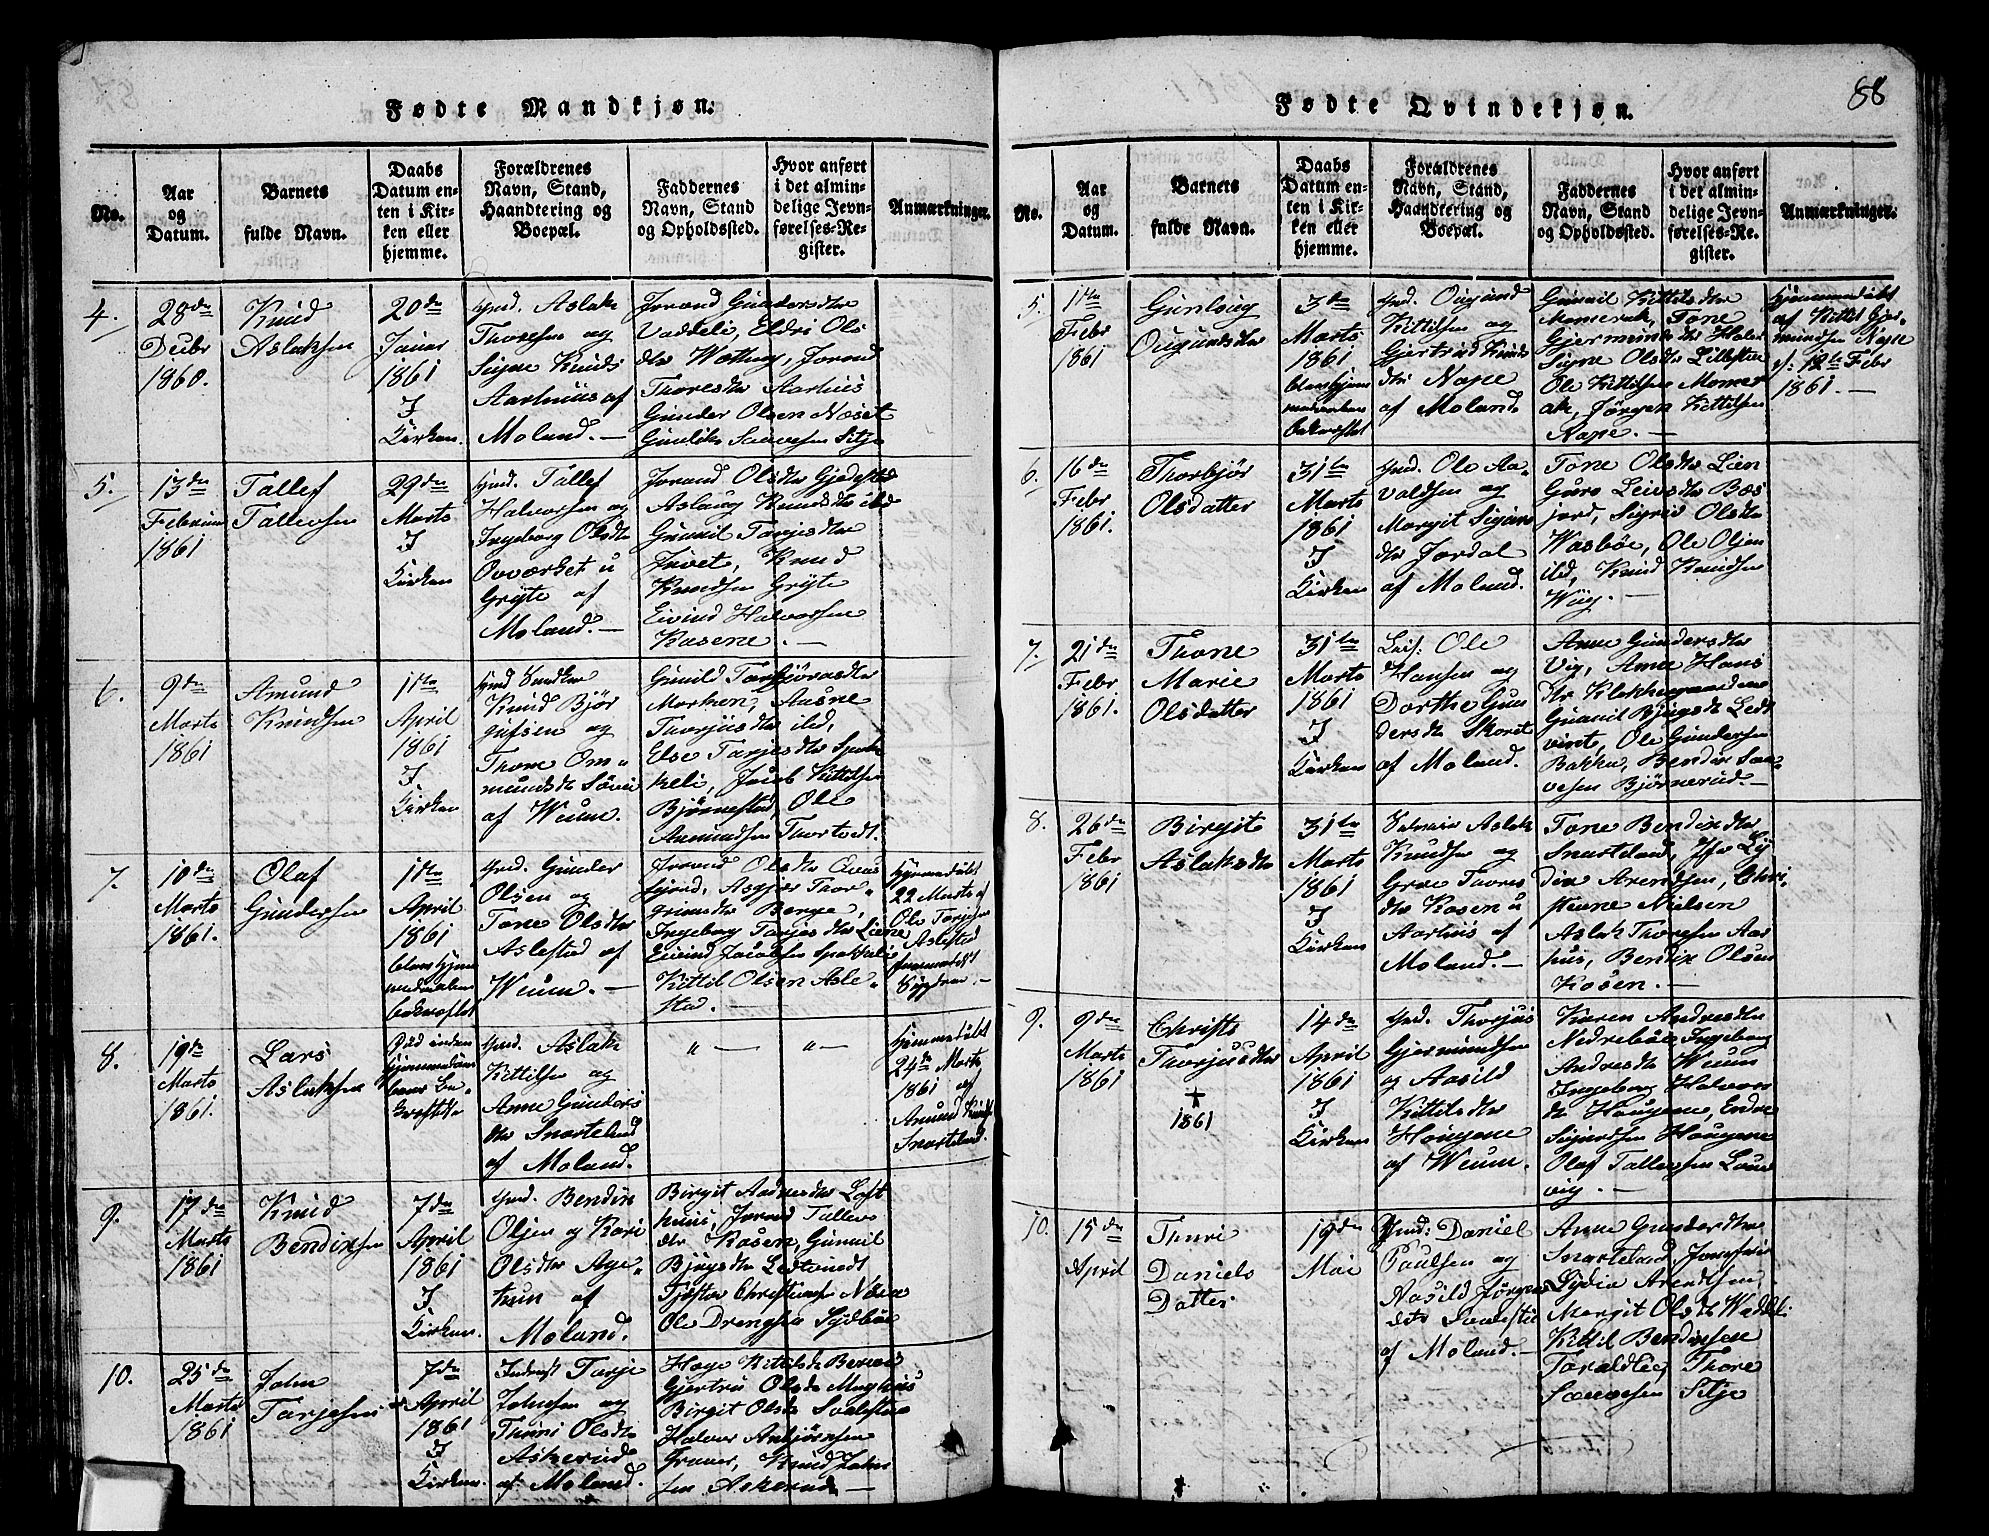 Fødte Mandkjøn.
No.
Aar
og
Datum.
Barnets
fulde Navn.
Daabs
Datum en-
ten i Kir-
ken eller
hjemme.
Forældrenes
Navn, Stand,
Haandtering og
Boepæl.
Faddernes
Navn, Stand
og Opholdssted.
Hvor anført
i det almin-
delige Jevn-
førelses-Re-
gister.
Anmærkninger.
4.
28de
Decbr
1860.
Knud
Aslaksen
20de
Januar
1861
I
Kirken.
Gmd. Aslak
Thorsen og
Signe Knuds
Aarhuus af
Moland.—
Jorand Gundersdtr
Vaddeli, Eldri Ols
dtr Jorand
Thoresdtr Aarhus
Gunder Olsen Næset
Gunlik Saavesen Silje
5.
13de
Februar
1861
Tallef
Tallevsen
29de
Marts
I
Kirken
Gmd. Tallef
Halvorsen og
Ingeborg Olsdtr
Gryte af
Moland.—
Jorand Olsdtr
Aslaug Knudsdtr ild
Gunnil Tarjesdtr
Juvet, Knud
Knudsen Gryte
Eivind Halvorsen
Kasene.—
6.
9de
Marts
1861
Amund
Knudsen
1ste
April
1861
I
Kirken
Knud Bjør
gufsen og
Thone Om=
mundsdt
af Weum.
Gunild Torbjørnsdtr
Morken, Aasne
Thorjusdtr ild,
Else Tarjesdtr Spok
keli, Jacob Kittilsen
Bjørnestad, Ole
Aamundsen Thortvedt.
7.
10de
Marts
1861.
Olaf
Gundersen
1ste
April
1861
blev hjem
medaaben
bekræftet
Gmd. Gunder
Olsen og
Tone Olsdtr
Aslestad af
Weum.—
Jorand Olsdtr
Asgjær Thor=
grimsdtr Berge,
Ingeborg Tarjesdtr Liene
Eivind Jacobsen Spokkeli
Kittil Olsen Asle=
stad.—
Hjemmedøbt
22 Marts af
Ole Tarjesen
Aslestad
formedelst
Sygdom.—
8.
19de
Marts
1861.
Lars
Aslaksen
Død inden
hjemmedaa
ben be
kræftedes
Gmd. Aslak
Kittilsen og
Anne Gunders
dtr Snarteland
af Moland.
" — " —
Hjemmedøbt
24de Marts
1861 af
Amund Knuds
Snarteland.
9.
17de
Marts
1861
Knud
Bendixsen
7de
April
1861
I
Kirken.
Gmd. Bendix
Olsen og Kari
Olsdtr
af
Moland.
Birgit Aadnesdtr Loft
huus, Jorand Tallevs
dtr Kosen, Gunnil
Bjugsdtr
Christensen Næsne
Ole Drengsen Sydbøe
10.
25de
Marts
1861
John
Tarjesen
7de
April
1861
I
Kirken
Inderst Tarje
Johnsen og
Thuri Olsdtr
Askerud
af Moland.
Hæge Kittilsdt
Gjertru Olsdt
Birgit Olsdt
Halvor Anbjørnsen
Knud Johns
sen Askerud—
Fødte Qvindekjøn.
88
No.
Aar
og
Datum.
Barnets
fulde Navn.
Daabs
Datum en-
ten i Kir-
ken eller
hjemme.
Forældrenes
Navn, Stand,
Haandtering og
Boepæl.
Faddernes
Navn, Stand
og Opholdssted.
Hvor anført
i det almin-
delige Jevn-
førelses-Re-
gister.
Anmærkninger.
5.
11te
Febr
1861
Gunloug
Ougundsdtr
3de
Marts
1861
blev hjem
medaaben
bekræftet
Gmd. Ougund
Kittilsen og
Gjertrud Knuds
dtr Nape
af Moland.
Gunnil Kittilsdtr
Momerak, Tone
Gjermundsdtr
Signe Olsdtr Lillestue
Ole Kittilsen Momer
ak, Jørgen Kittilsen
Nape.—
Hjemmedøbt
af Kittil Gjer=
mundsen Nape
d: 12te Febr
1861.—
6.
16de
Febr
1861.
Thorbjør
Olsdatter
31te
Marts
1861
I
Kirken
Gmd. Ole Aa=
valdsen og
Margit Sigurs
dtr Jordal
af Moland.
Tone Olsdtr Lien
Guro Leivsdtr Bæs
jord, Sigrid Olsdtr
Wasbøe, Ole Olsen
ild, Knud Knudsen
7.
21de
Febr
1861.
Thone
Marie
Olsdatter
31te
Marts
1861
I
Kirken
Leil: Ole
Hansen og
Dorthe Gun
dersdt
af Moland.
Anne Gundersdtr
Vig, Anne Hans
dtr Klokkegaarden
Gunnil Bjugsdt
Ole Gundersen
Bakken, Bendix Saa=
vesen Bjørnerud.—
8.
26de
Febr
1861
Birgit
Aslaksdtr
31te
Marts
1861
I
Kirken
Aslak
Knudsen og
Groe Thores
dtr Kosen u
Aarhus af
Moland.—
Tone Bendixsdtr
Snarteland, Jfr Ly
dia Arendsen, Chri=
stiane Nielsen
Aslak Thoresen Aar
hus, Bendix Olsen
Kosen.—
9.
9de
Marts
1861
Christi
Thorjusdtr
+
1861
14de
April
1861
I
Kirken
Gmd. Thorjus
Gjermundsen
og Aasild
Kittilsdtr
Hougene
af Weum.
Karen Andresdtr
Nedrebøe, Ingeborg
Andresdt Weum
Ingeborg Halvors
dt Hougene, Endre
Sigurdsen Hougene
Olaf Tallevsen Laur
vig.—
10.
15de
April
Thuri
Daniels
Datter
19de
Mai
Gmd: Daniel
Paulsen og
Aasild Jørgens
dtr
af Moland.—
Anne Gundersdtr
Snarteland, Jomfrue
Lydia Arendtsen,
Margit Olsdt Waddel:
Kittil Bendixsen
Taraldlie, Thore
Saavesen Silje